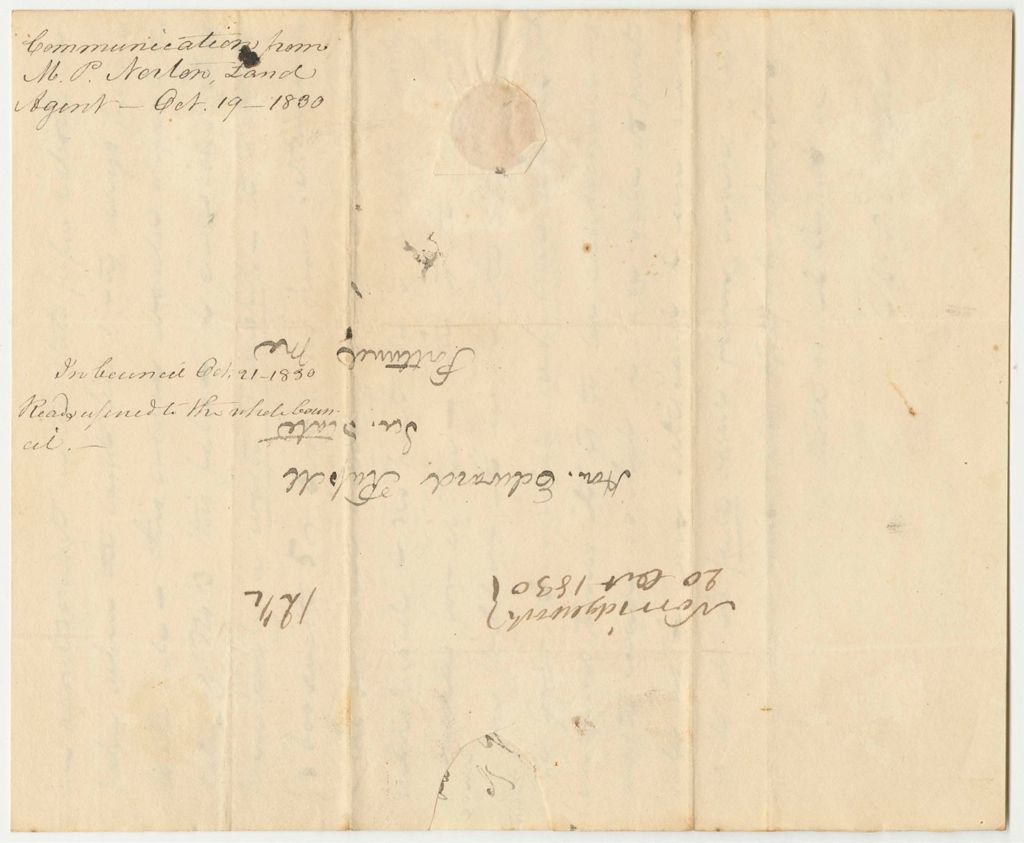 Communication from
M. P. Norton, Land
Agent — Oct. 19 — 1830
In Council Oct. 21 - 1830
Read & refered to the whole Coun-
cil. —
Norridgewock
20 Oct 1830
12½
Hon. Edward Russell
Sec. State
Portland
Me